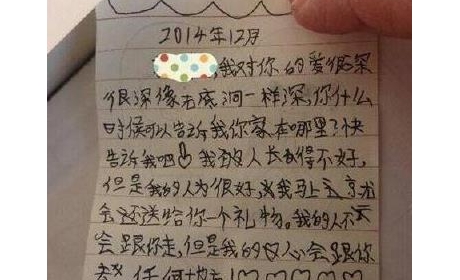 2014年12月
,我对你的爱很深
很深像无底洞一样深,你什么
时候可以告诉我你家在哪里?快
告诉我吧 我的人长得不好,
但是我的人为很好,我马上
会还送给你一个礼物。我的人不
会跟你走,但是我的心会跟你
任何地